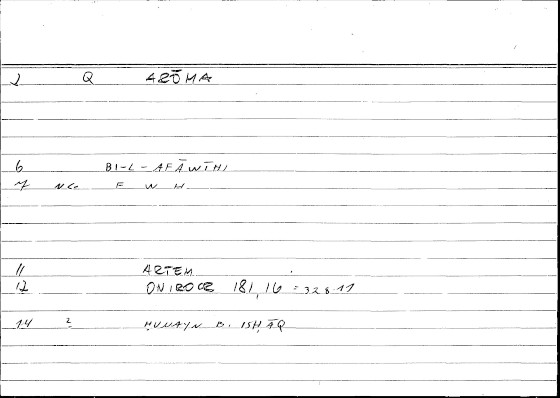 1 Q ARŌMA
6 BI-L-AFĀWĪHI
7 F W H
11 ARTEM
12 ONIROCR 181,16 = 328 11
14 2 ḤUNAYN B. ISḤĀQ